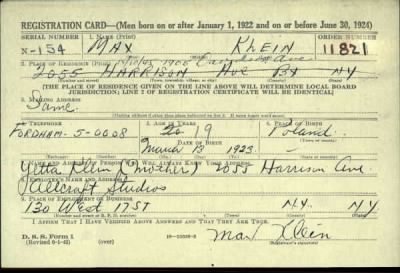 REGISTRATION CARD—(Men born on or after January 1, 1922 and on or before June 30, 1924)
SERIAL NUMBER 1. NAME (Print) ORDER NUMBER
N-154 MAX KLEIN 11821
(First) (Middle) (Last)
2. PLACE OF RESIDENCE (Print) 1900 Ave
2055 HARRISON Ave BX NY
(Number and street) (Town, township, village, or city) (County) (State)
[THE PLACE OF RESIDENCE GIVEN ON THE LINE ABOVE WILL DETERMINE LOCAL BOARD
JURISDICTION; LINE 2 OF REGISTRATION CERTIFICATE WILL BE IDENTICAL]
3. MAILING ADDRESS
Same
4. TELEPHONE 5. AGE IN YEARS 6. PLACE OF BIRTH
FORDHAM-5-0008 20 19 Poland
DATE OF BIRTH
March 13 1923
7. NAME AND ADDRESS OF PERSON WHO WILL ALWAYS KNOW YOUR ADDRESS
Yetta Klein (mother) 2055 Harrison Ave.
8. EMPLOYER'S NAME AND ADDRESS
Studios
9. PLACE OF EMPLOYMENT OR BUSINESS
130 West 17 ST N.Y. N.Y.
(Number and street or R. F. D. number) (Town) (County) (State)
I AFFIRM THAT I HAVE VERIFIED ABOVE ANSWERS AND THAT THEY ARE TRUE.
D. S. S. Form 1
(Revised 6-1-42) (over)
Max Klein
(Registrant's signature)